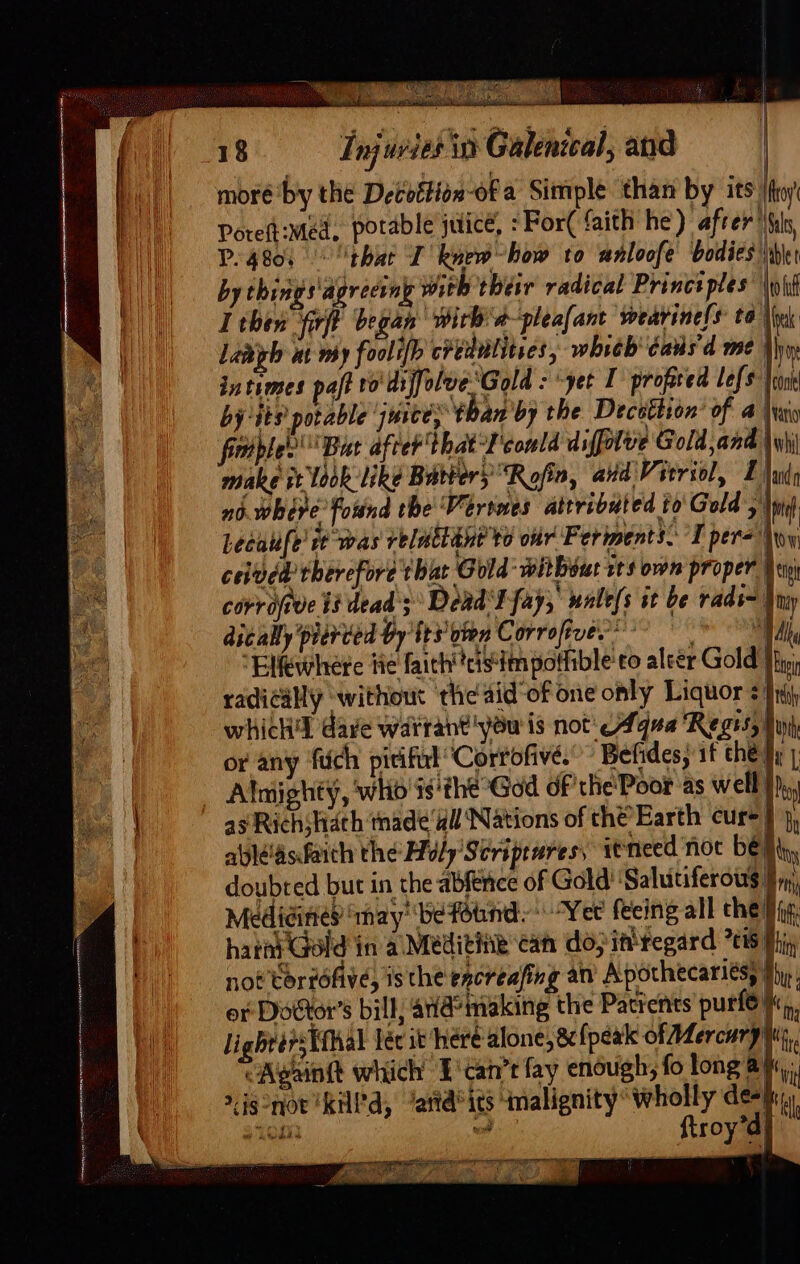 18 Injuries in Galenical, and
more by the Decoction of a Simple than by its
Poteſt: Med. potable juice, : For (ſaith he) after
P. 480. that I knew how to unlooſe bodies
by things agreeing with their radical Principles
I then firſt began with a pleaſant wearineſs to
laugh at my fooliſh credulities, which caus'd me
in times paſt to diſſolve Gold : yet I profited leſs
by its potable juice, than by the Decoction of a
ſimple. But after that I could diſſolve Gold, and
make it look like Butter, Roſin, and Vitriol, I
no where found the Vertues attributed to Gold,
becauſe it was reluctant to our Ferments. I per-
ceived therefore that Gold without its own proper
corroſive is dead; Dead I ſay, unleſs it be radi-
dically pierced by its own Corroſive.
Elſewhere he ſaith 'tis impoſſible to alter Gold
radically without the aid of one only Liquor :
which I dare warrant you is not Aqua Regis,
or any ſuch pitiful Corroſive. Beſides, if the
Almighty, who is the God of the Poor as well
as Rich, hath made all Nations of the Earth cur-
able as ſaith the Holy Scriptures, it need not be
doubted but in the abſence of Gold Salutiferous
Medicines may be found. Yet ſeeing all the
harm Gold in a Medicine can do, in regard 'tis
not corroſive, is the encreaſing an Apothecaries,
or Doctor's bill, and making the Patients purſe
lighter, I ſhal let it here alone, & ſpeak of Mercury
Againſt which I can't ſay enough, ſo long as
'tis not kill'd, and its malignity wholly de-
ſtroy'd